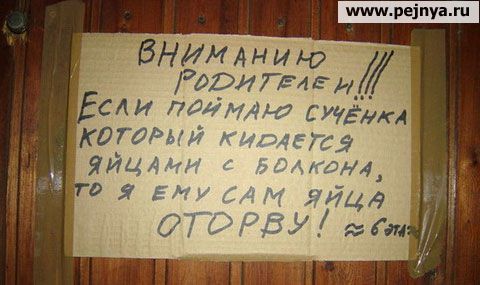 www.pejnya.ru
ВНИМАНИЮ
РОДИТЕЛЕЙ!!!
ЕСЛИ ПОЙМАЮ СУЧЁНКА
КОТОРЫЙ КИДАЕТСЯ
ЯЙЦАМИ С БОЛКОНА,
ТО Я ЕМУ САМ ЯЙЦА
ОТОРВУ! ≈ 6 ЭТАЖ